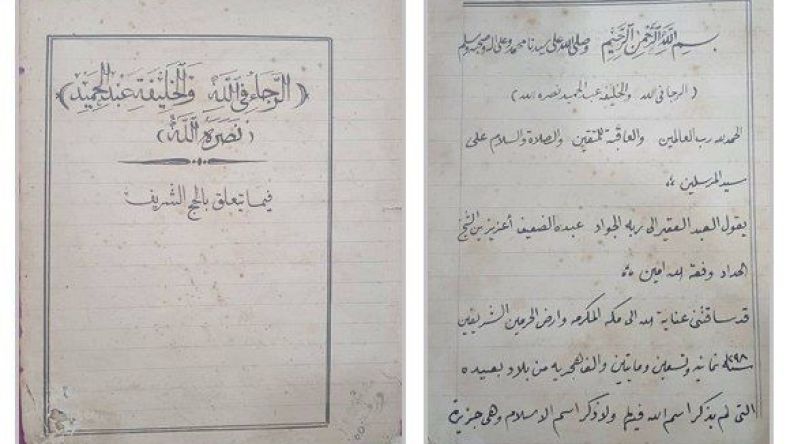 (الرجاء في الله والخليفة عبد الحميد)
(نصره الله)
فيما يتعلق بالحج الشريف
بسم الله الرحمن الرحيم وصلى الله على سيدنا محمد وعلى آله وصحبه وسلم
(الرجا في الله والخليفه عبد الحميد نصره الله)
الحمد لله رب العالمين والعاقبة للمتقين والصلاة والسلام على
سيد المرسلين
يقول العبد الفقير الى ربه الجواد عبده الضعيف أعزيز بن الشيخ
الحداد وفقه الله امين
قد ساقتني عناية الله الى مكه المكرمه وارض الحرمين الشريفين
سنة ١٢٩٨ ثمانيه وتسعين ومايتين والف هجريه من بلاد بعيده
التي لم يذكر اسم الله فيها ولا ذكر اسم الاسلام وهي جزيرة